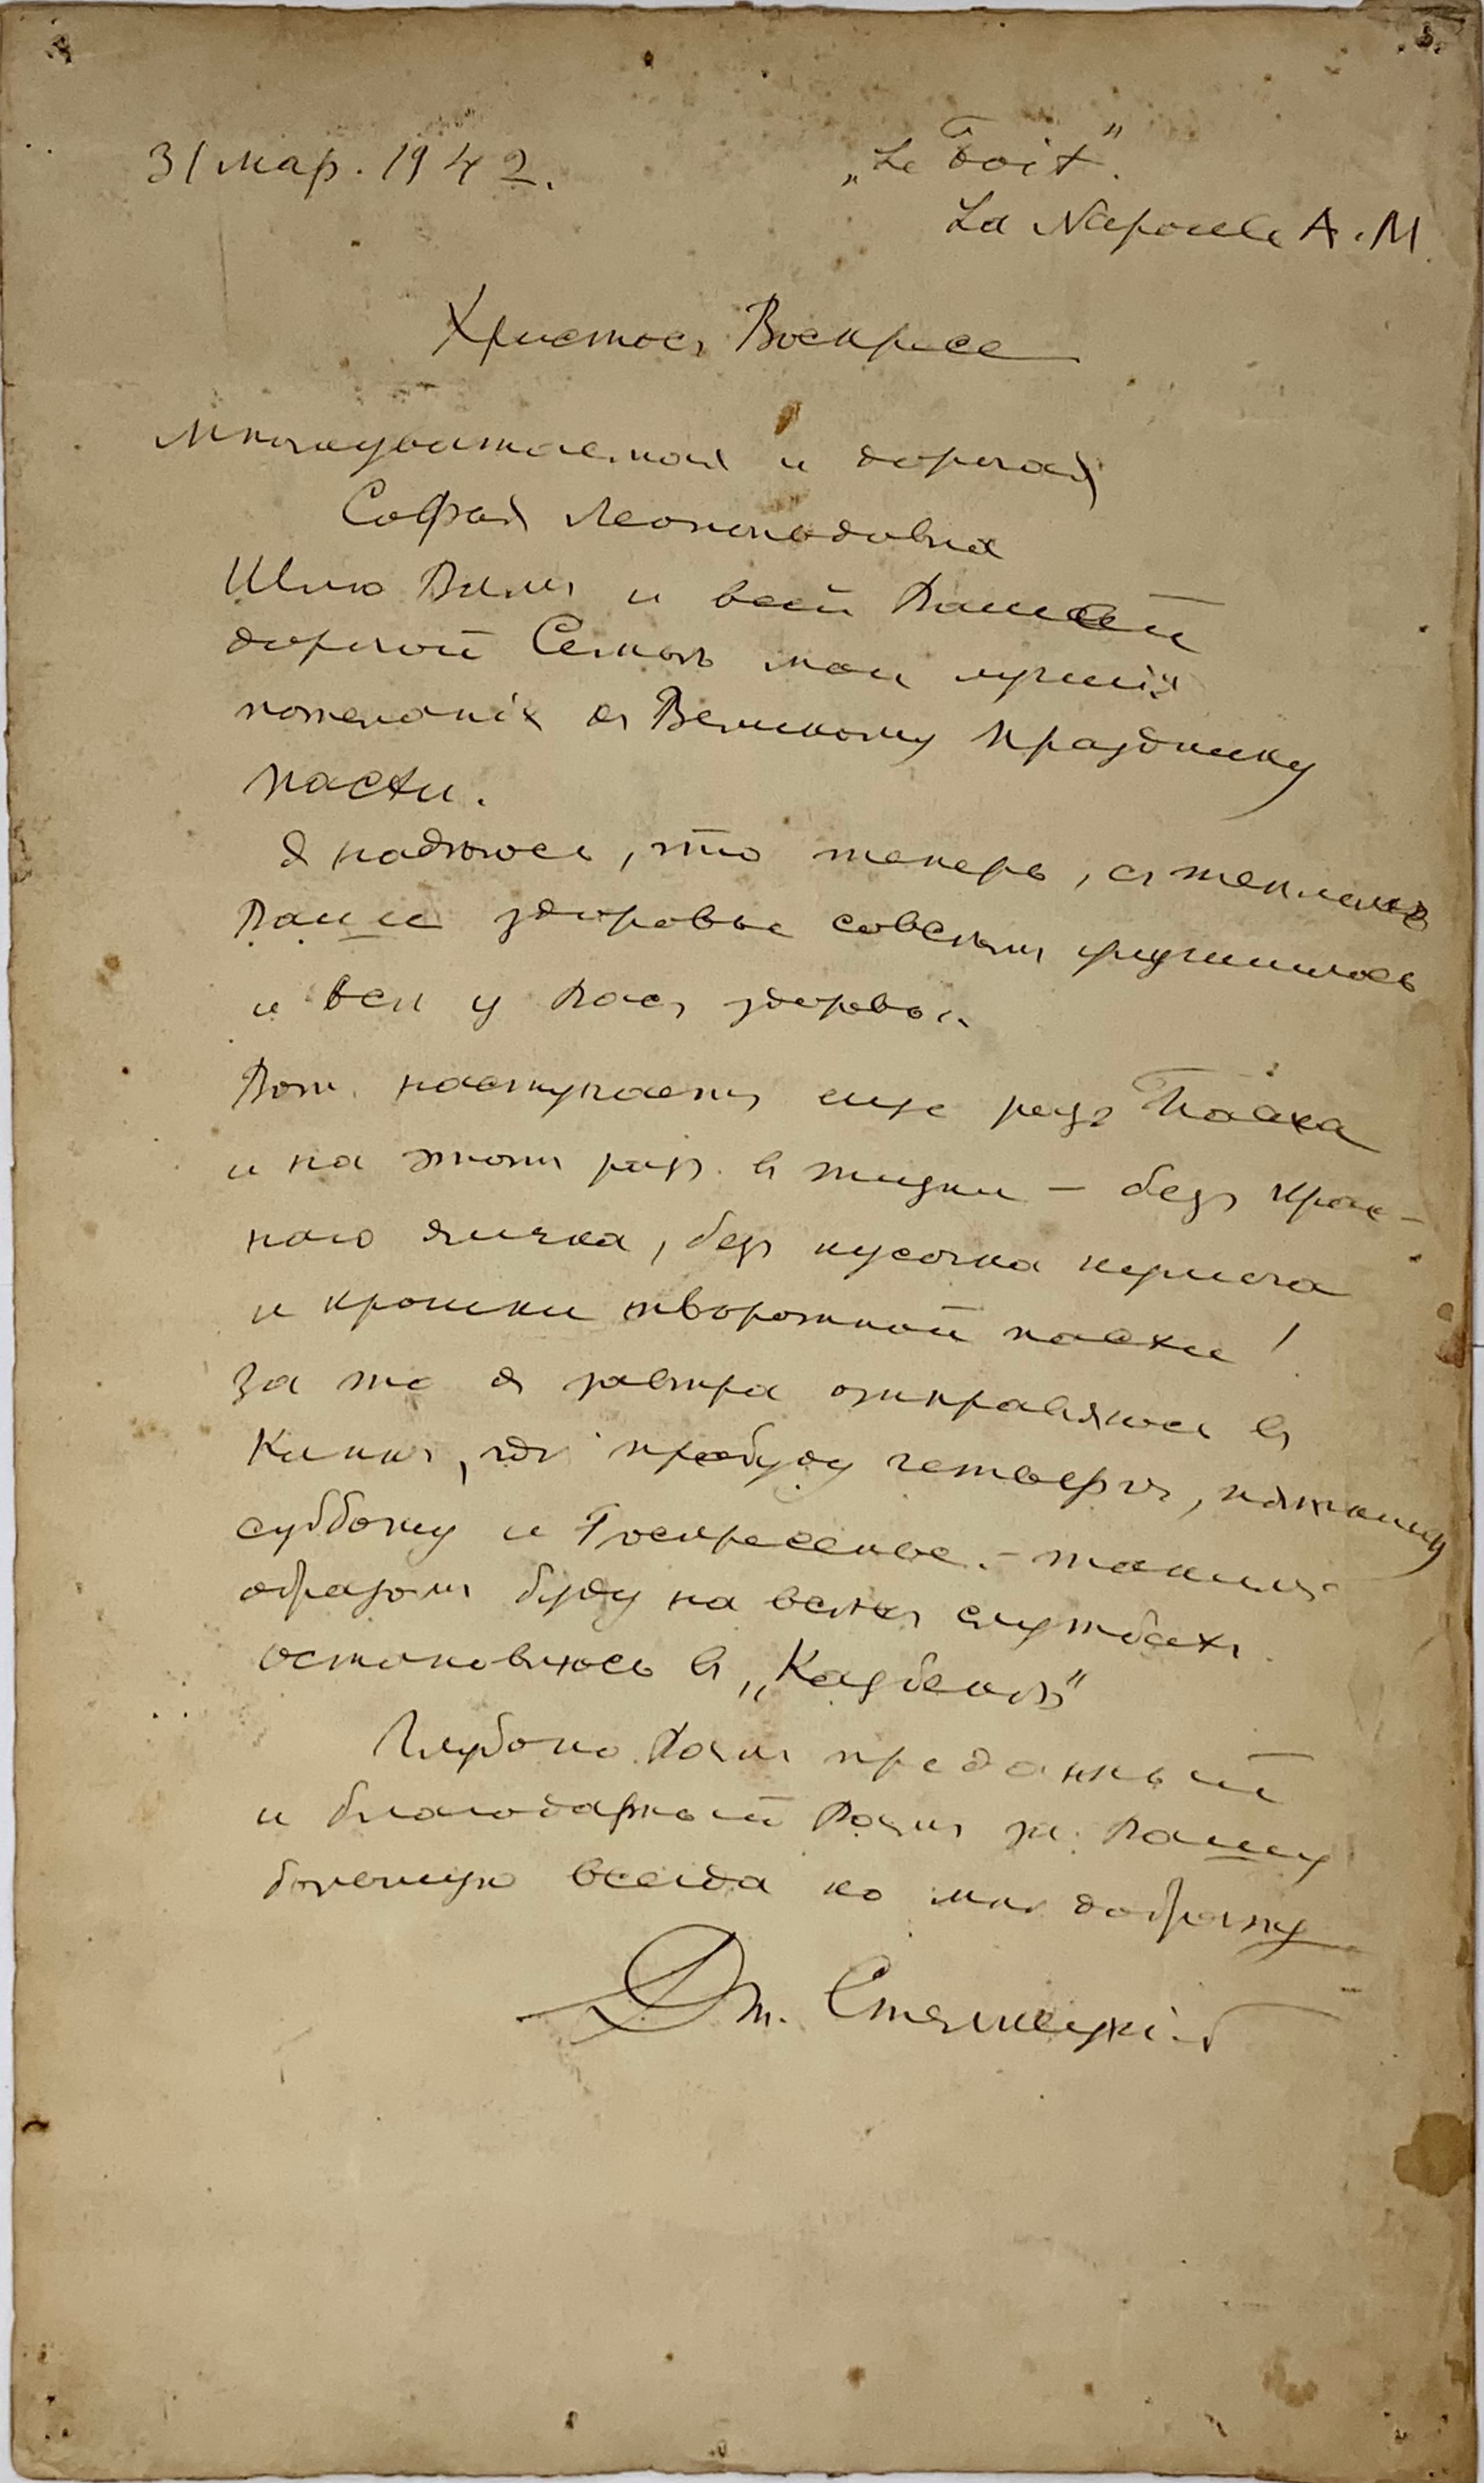 31 мар. 1942.
„Le Toit".
La Napoule A.M.
Христосъ Воскресе
Многоуважаемая и дорогая
София Леопольдовна
Шлю Вамъ и всей Вашей
дорогой Семьѣ мои лучшія
пожеланія къ Великому празднику
пасхи.
Я надѣюсь, что теперь, съ тепломъ
Ваше здоровье совсѣмъ улучшилось
и всѣ у Васъ здоровы.
Вотъ наступаетъ еще разъ Пасха
и на этотъ разъ въ жизни – безъ крас-
наго яичка, безъ кусочка кулича
и крошки творожной пасхи!
За то я завтра отправляюсь въ
Каннъ, гдѣ пробуду четвергъ, пятницу
субботу и Воскресенье. – такимъ
образомъ буду на всѣхъ службахъ.
остановлюсь въ „Казбекѣ"
Глубоко Вамъ преданный
и благодарный Вамъ за Вашу
большую всегда ко мнѣ доброту
Дм. Стеллецкій